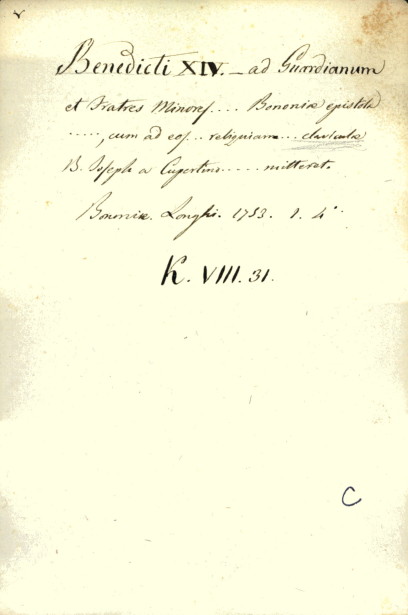 Benedicti XIV. — ad Guardianum
et Fratres Minores .... Bononiæ epistola
....., cum ad eos .. reliquiam ... claviculæ
B. Joseph a Cupertino ..... mitteret.
Bononiæ. Longhi. 1753. 1. 4°
K. VIII. 31.
C